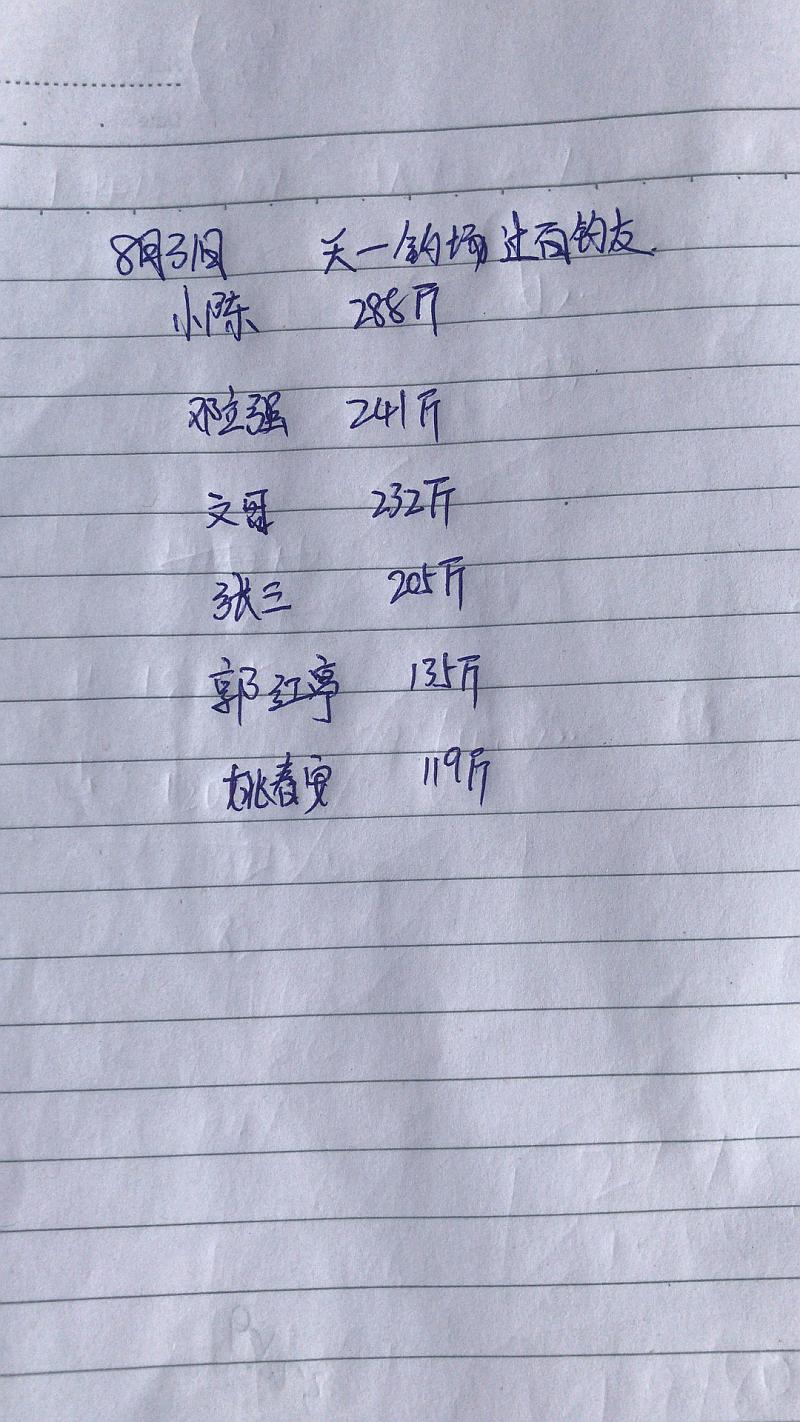 8月31日 天一钓场过百钓友.
小陈 288斤
邓立强 241斤
文哥 232斤
张三 205斤
郭红亭 135斤
姚春 119斤